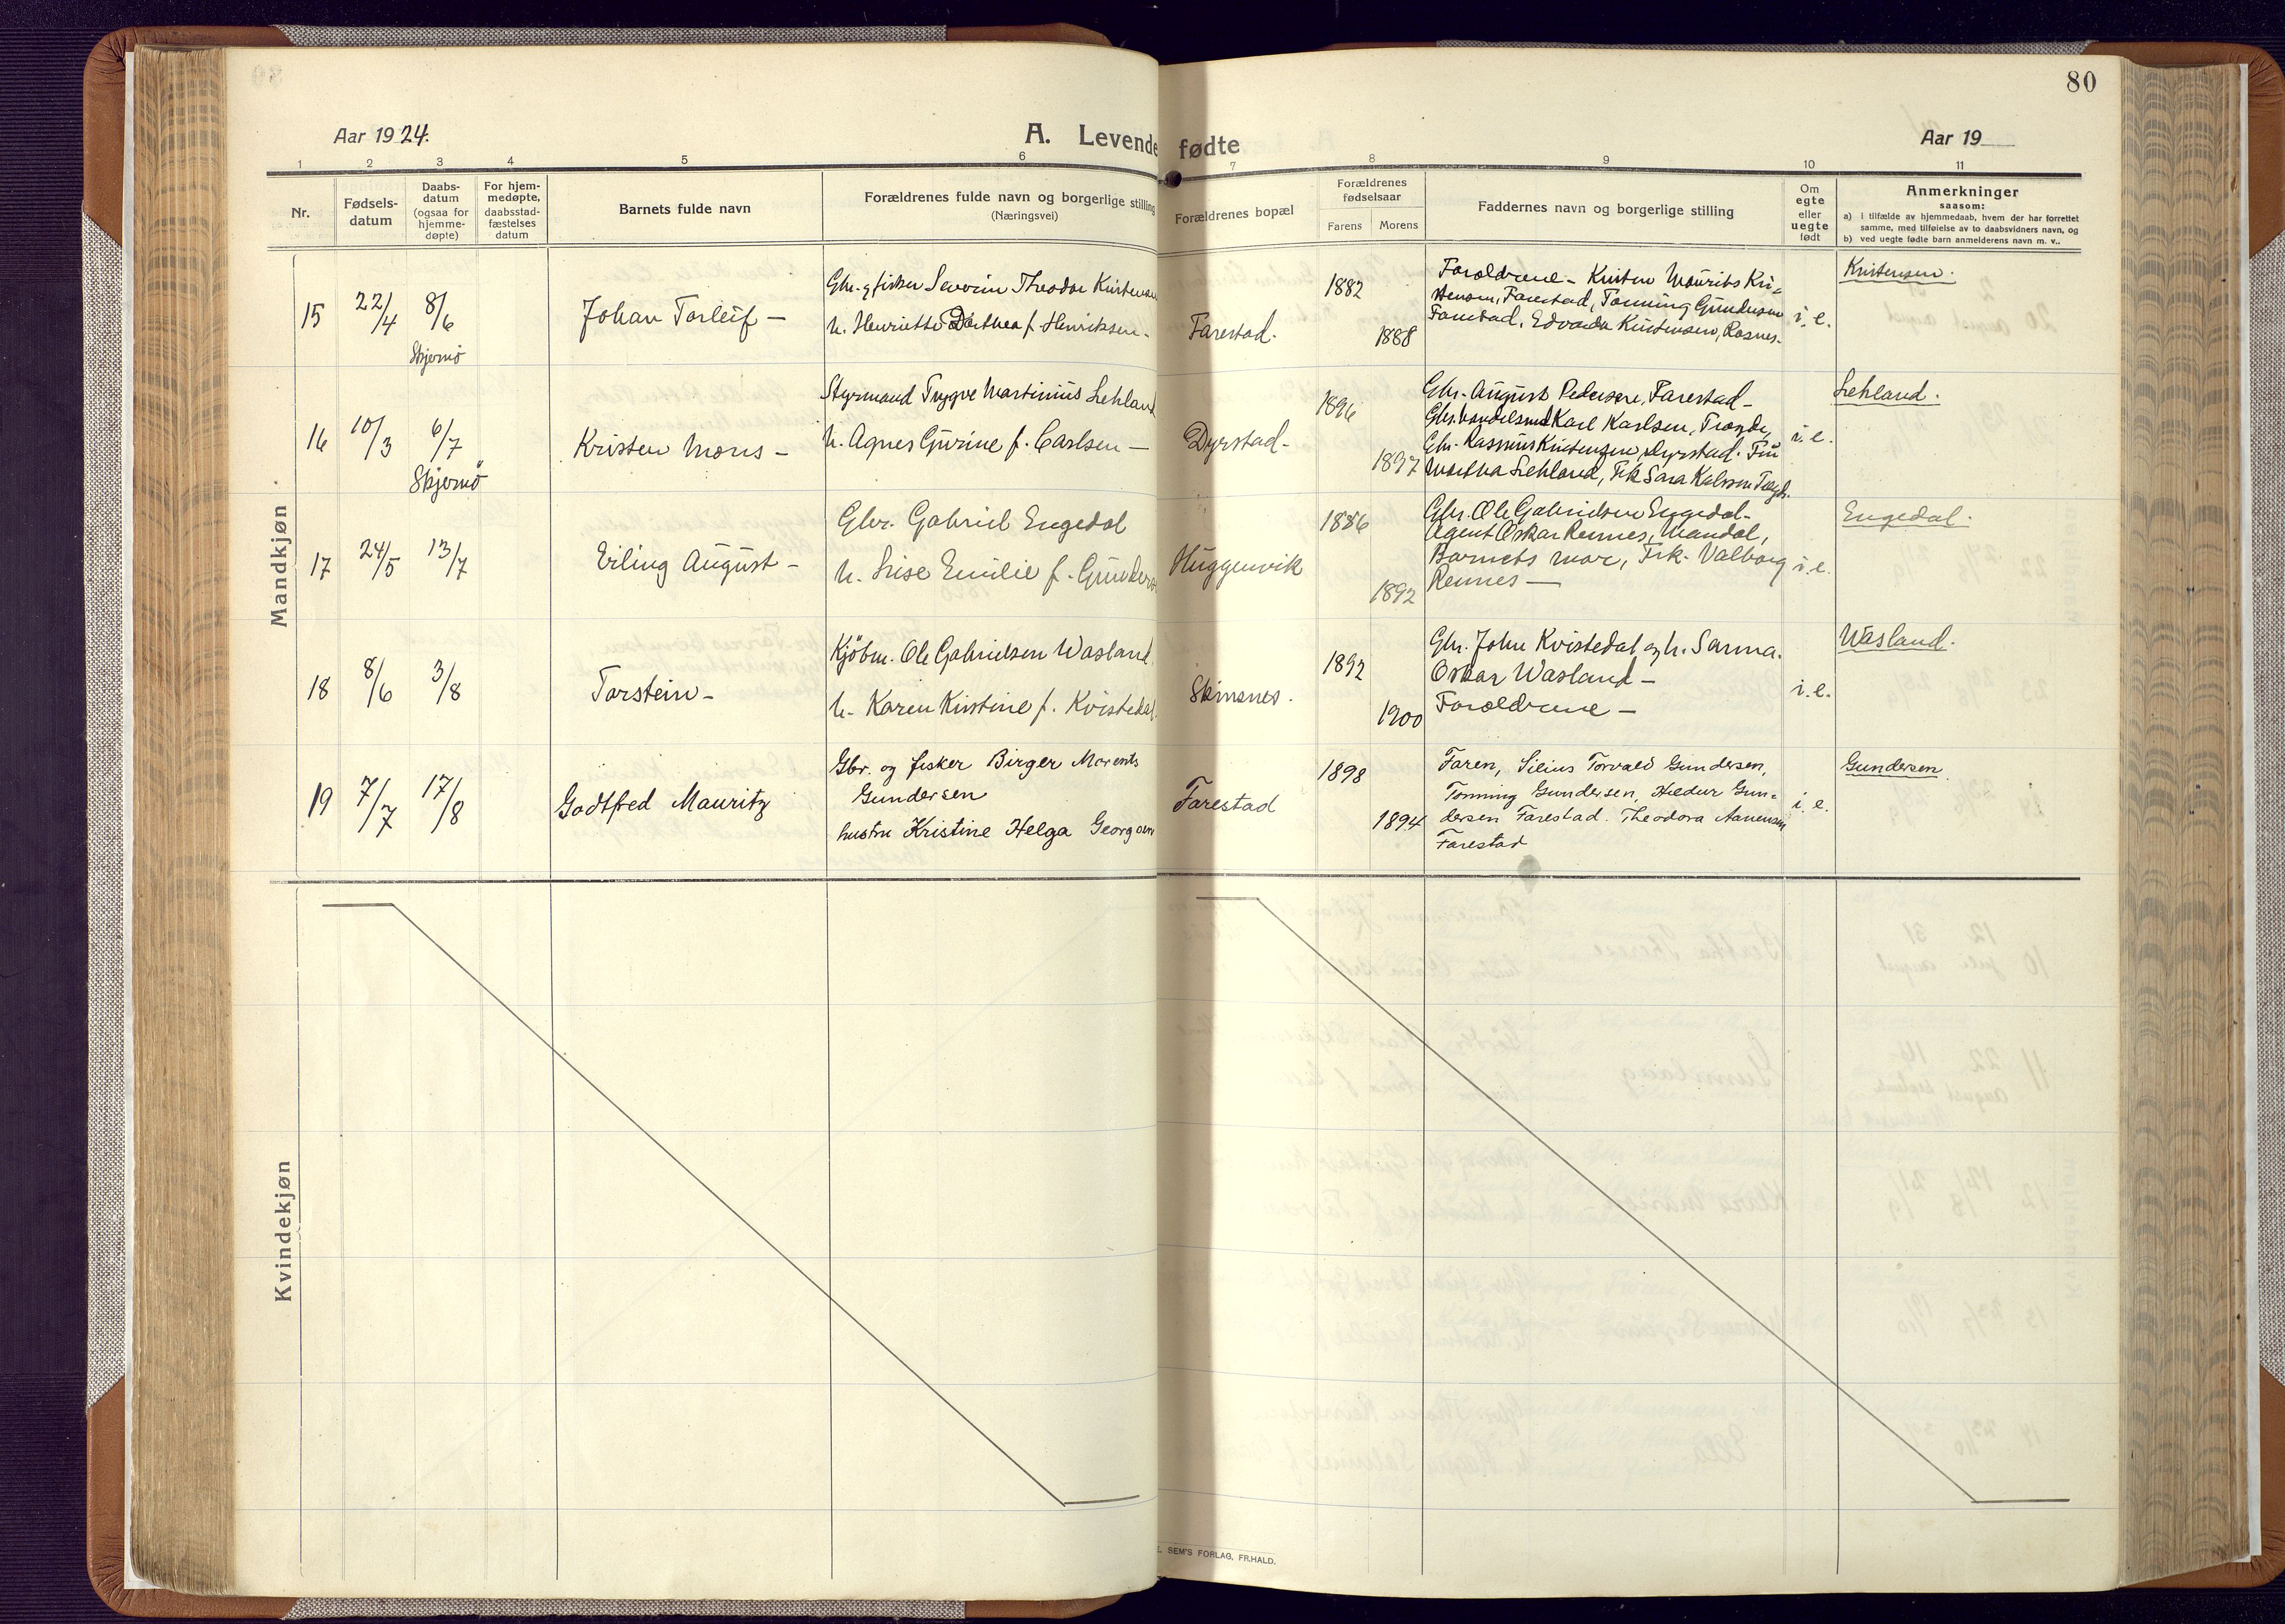 80
Aar 1924.
A. Levende fødte
Aar 19
1 2 3 4 5 6 7 8 9 10 11
Nr.
Fødsels-
datum
Daabs-
datum
(ogsaa for
hjemme-
døpte)
For hjem-
medøpte,
daabsstad-
fæstelses
datum
Barnets fulde navn
Forældrenes fulde navn og borgerlige stilling
(Næringsvei)
Forældrenes bopæl
Forældrenes
fødselsaar
Farens Morens
Faddernes navn og borgerlige stilling
Om
egte
eller
uegte
født
Anmerkninger
saasom:
a) i tilfælde av hjemmedaab, hvem der har forrettet
samme, med tilføielse av to daabsvidners navn, og
b) ved uegte fødte barn anmelderens navn m. v..
Mandkjøn
15
22/4
8/6
Skjernö
Johan Torleif –
Gbr. og fisker Severin Theodor Kristensen
h. Henriette Dorthea f. Henriksen –
Farestad.
1882
1888
Forældrene – Kristen Mourits Kri-
stensen, Farestad, Tonning Gundersen
Farestad, Edvarda Kristensen, Rosnes.
i. e.
Kristensen.
16
10/3
6/7
Skjernö
Kristen Mons –
Styrmand Trygve Martinius Lehland
h. Agnes Gurine f. Carlsen –
Dyrstad –
1896
1897
Gbr. August Pedersen, Farestad –
Gbr. handelsmd Karl Karlsen, Tregde,
Gbr. Rasmus Kristensen, Dyrstad. Fru
Martha Lehland, Frk Sara Kalsson Tregde.
i. e.
Lehland.
17
24/5
13/7
Erling August –
Gbr. Gabriel Engedal
h. Lise Emilie f. Gunders
Huggenvik
1886
1892
Gbr. Ole Gabrielsen Engedal –
Agent Oskar Rennes, Mandal,
Barnets mor, Frk. Valborg
Rennes –
i. e.
Engedal.
18
8/6
3/8
Torstein –
Kjöbm. Ole Gabrielsen Wasland
h. Karen Kristine f. Kvistedal.
Skinsnes.
1892
1900
Gbr. John Kvistedal og h. Sanna.
Oskar Wasland –
Forældrene –
i. e.
Wasland.
19
7/7
17/8
Godtfred Mauritz
Gbr. og fisker Birger Morents
Gundersen
hustru Kristine Helga Georg
Farestad
1898
1894
Faren, Silius Torvald Gundersen,
Tonning Gundersen, Hildur Gun-
dersen Farestad. Theodora Aanensen
Farestad
i. e.
Gundersen.
Kvindekjøn
SEM'S FORLAG, FR.HALD.